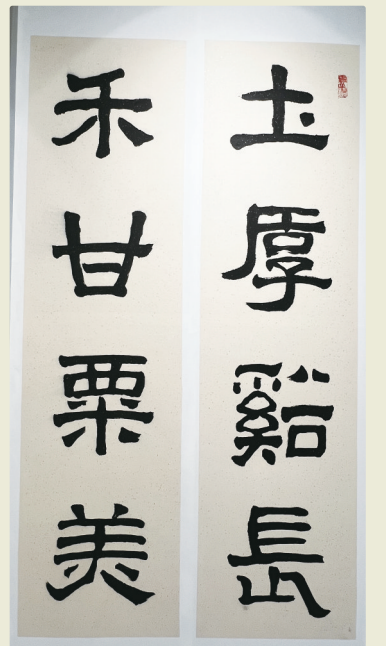 土厚谿長
禾甘粟美